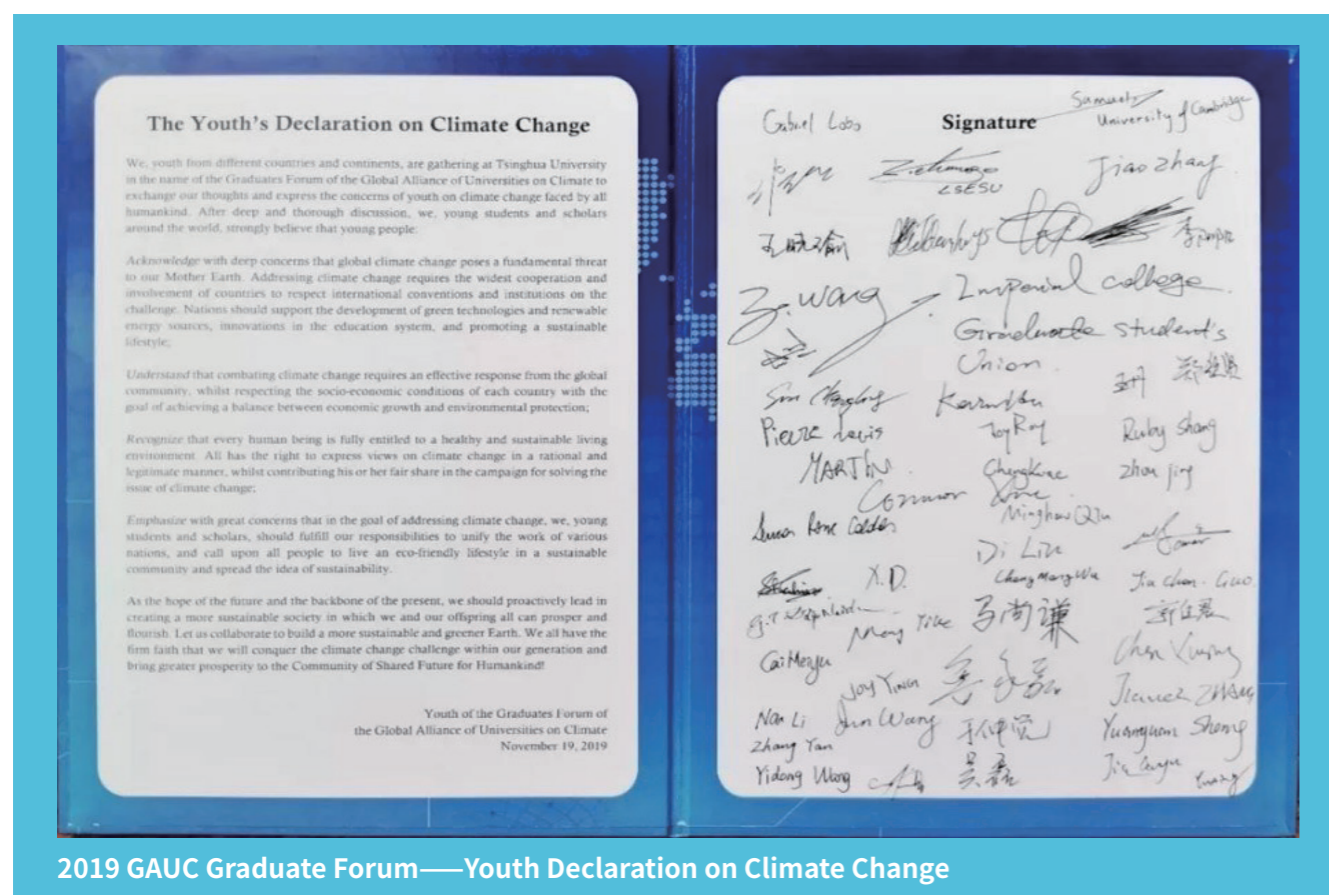 The Youth's Declaration on Climate Change
We, youth from different countries and continents, are gathering at Tsinghua University
in the name of the Graduates Forum of the Global Alliance of Universities on Climate to
exchange our thoughts and express the concerns of youth on climate change faced by all
humankind. After deep and thorough discussion, we, young students and scholars
around the world, strongly believe that young people:
Acknowledge with deep concerns that global climate change poses a fundamental threat
to our Mother Earth. Addressing climate change requires the widest cooperation and
involvement of countries to respect international conventions and institutions on the
challenge. Nations should support the development of green technologies and renewable
energy sources, innovations in the education system, and promoting a sustainable
lifestyle;
Understand that combating climate change requires an effective response from the global
community, whilst respecting the socio-economic conditions of each country with the
goal of achieving a balance between economic growth and environmental protection;
Recognize that every human being is fully entitled to a healthy and sustainable living
environment. All has the right to express views on climate change in a rational and
legitimate manner, whilst contributing his or her fair share in the campaign for solving the
issue of climate change;
Emphasize with great concerns that in the goal of addressing climate change, we, young
students and scholars, should fulfill our responsibilities to unify the work of various
nations, and call upon all people to live an eco-friendly lifestyle in a sustainable
community and spread the idea of sustainability.
As the hope of the future and the backbone of the present, we should proactively lead in
creating a more sustainable society in which we and our offspring all can prosper and
flourish. Let us collaborate to build a more sustainable and greener Earth. We all have the
firm faith that we will conquer the climate change challenge within our generation and
bring greater prosperity to the Community of Shared Future for Humankind!
Youth of the Graduates Forum of
the Global Alliance of Universities on Climate
November 19, 2019
Signature
Gabriel Lobo
University of Cambridge
LSESU
Jiao Zhang
Z. Wang
Imperial college
Graduate Student's
Union
Pierre
Ruby Shang
MARTIN
Zhou Jing
Connor
Di Liu
X.D.
马尚谦
Joy
Nan Li
Jun Wang
Zhang Yan
Yidong Wang
2019 GAUC Graduate Forum——Youth Declaration on Climate Change